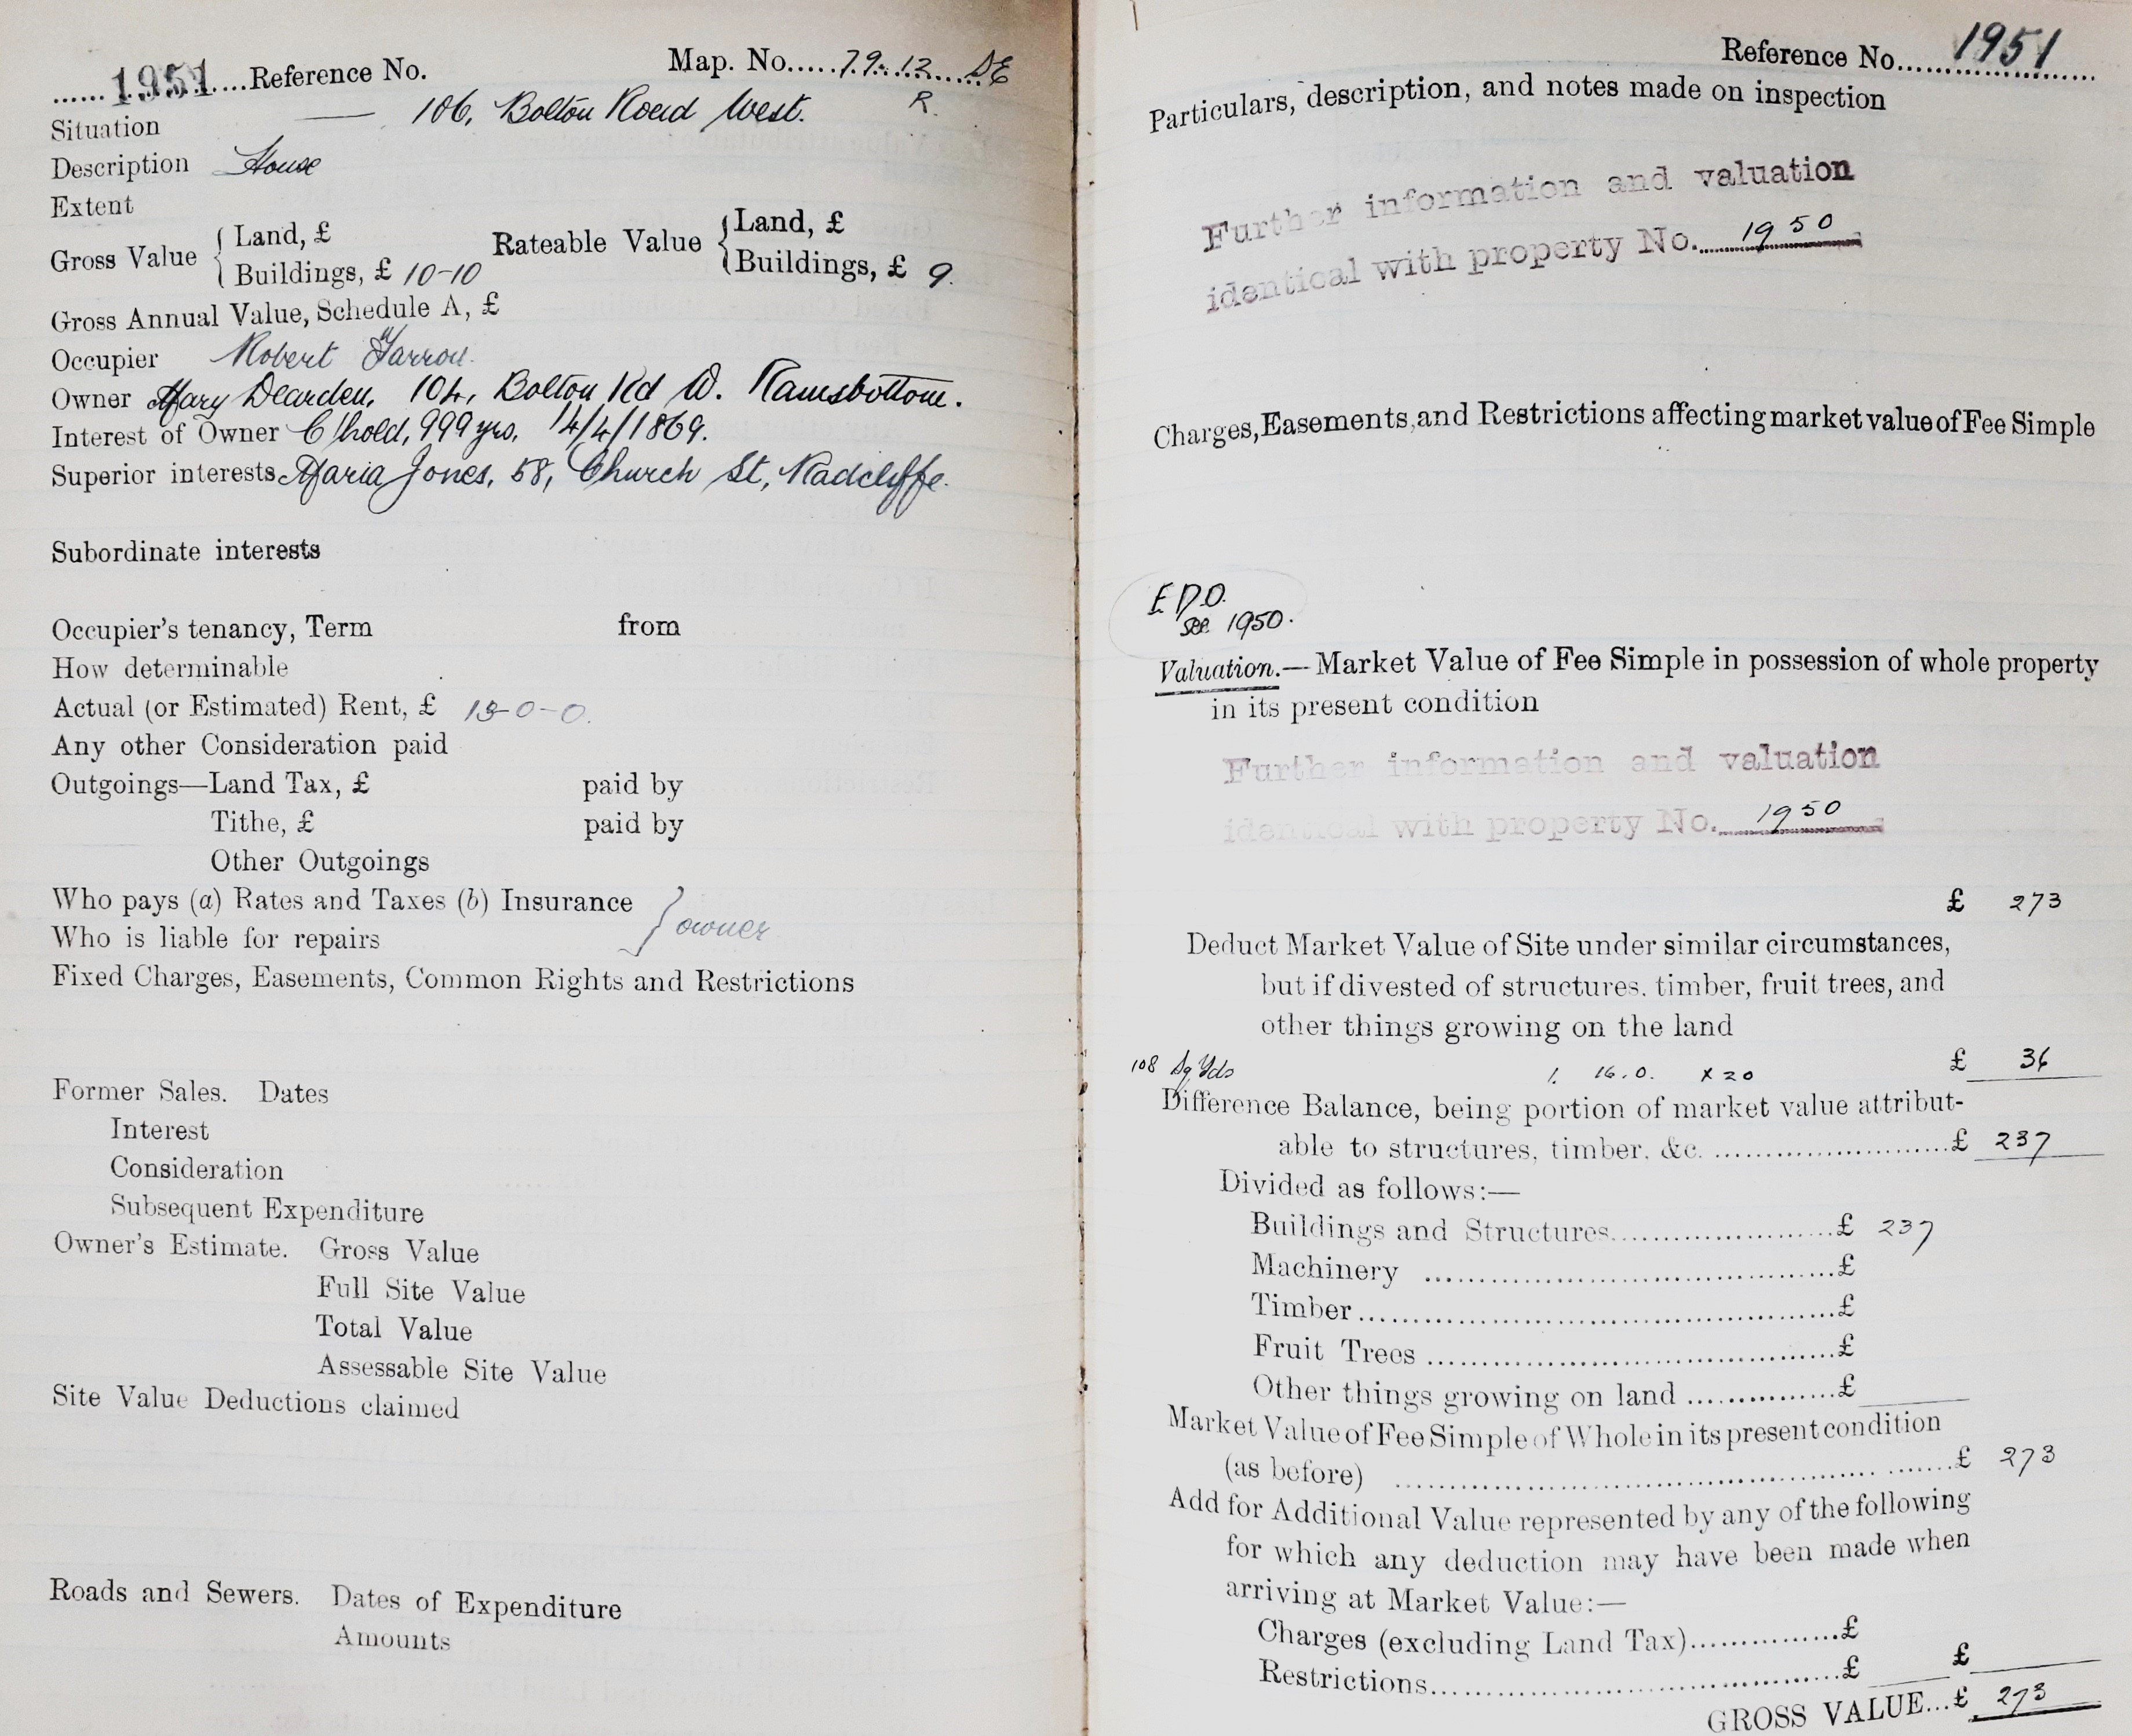 ......1951....Reference No. Map. No.....79.12 SE
Situation — 106, Bolton Road West. R.
Description House
Extent
Gross Value { Land, £ Rateable Value { Land, £
Buildings, £ 10-10 Buildings, £ 9.
Gross Annual Value, Schedule A, £
Occupier Robert
Owner Mary Dearden, 104, Bolton Rd W. Ramsbottom.
Interest of Owner C/hold, 999 yrs, 14/4/1869.
Superior interests Maria Jones, 58, Church St, Radcliffe.
Subordinate interests
Occupier's tenancy, Term from
How determinable
Actual (or Estimated) Rent, £ -0-0.
Any other Consideration paid
Outgoings—Land Tax, £ paid by
Tithe, £ paid by
Other Outgoings
Who pays (a) Rates and Taxes (b) Insurance } owner
Who is liable for repairs
Fixed Charges, Easements, Common Rights and Restrictions
Former Sales. Dates
Interest
Consideration
Subsequent Expenditure
Owner's Estimate. Gross Value
Full Site Value
Total Value
Assessable Site Value
Site Value Deductions claimed
Roads and Sewers. Dates of Expenditure
Amounts
Reference No....1951
Particulars, description, and notes made on inspection
Further information and valuation
identical with property No. 1950
Charges, Easements, and Restrictions affecting market value of Fee Simple
F.D.O.
see 1950.
Valuation.— Market Value of Fee Simple in possession of whole property
in its present condition
Further information and valuation
identical with property No. 1950
£ 273
Deduct Market Value of Site under similar circumstances,
but if divested of structures, timber, fruit trees, and
other things growing on the land
108 Sq Yds 1. 16. 0. x 20 £ 36
Difference Balance, being portion of market value attribut-
able to structures, timber, &c. ........................£ 237
Divided as follows:—
Buildings and Structures........................£ 237
Machinery ........................£
Timber........................£
Fruit Trees ........................£
Other things growing on land ...............£
Market Value of Fee Simple of Whole in its present condition
(as before) ........................£ 273
Add for Additional Value represented by any of the following
for which any deduction may have been made when
arriving at Market Value:—
Charges (excluding Land Tax)...............£
Restrictions........................£ £
GROSS VALUE...£ 273